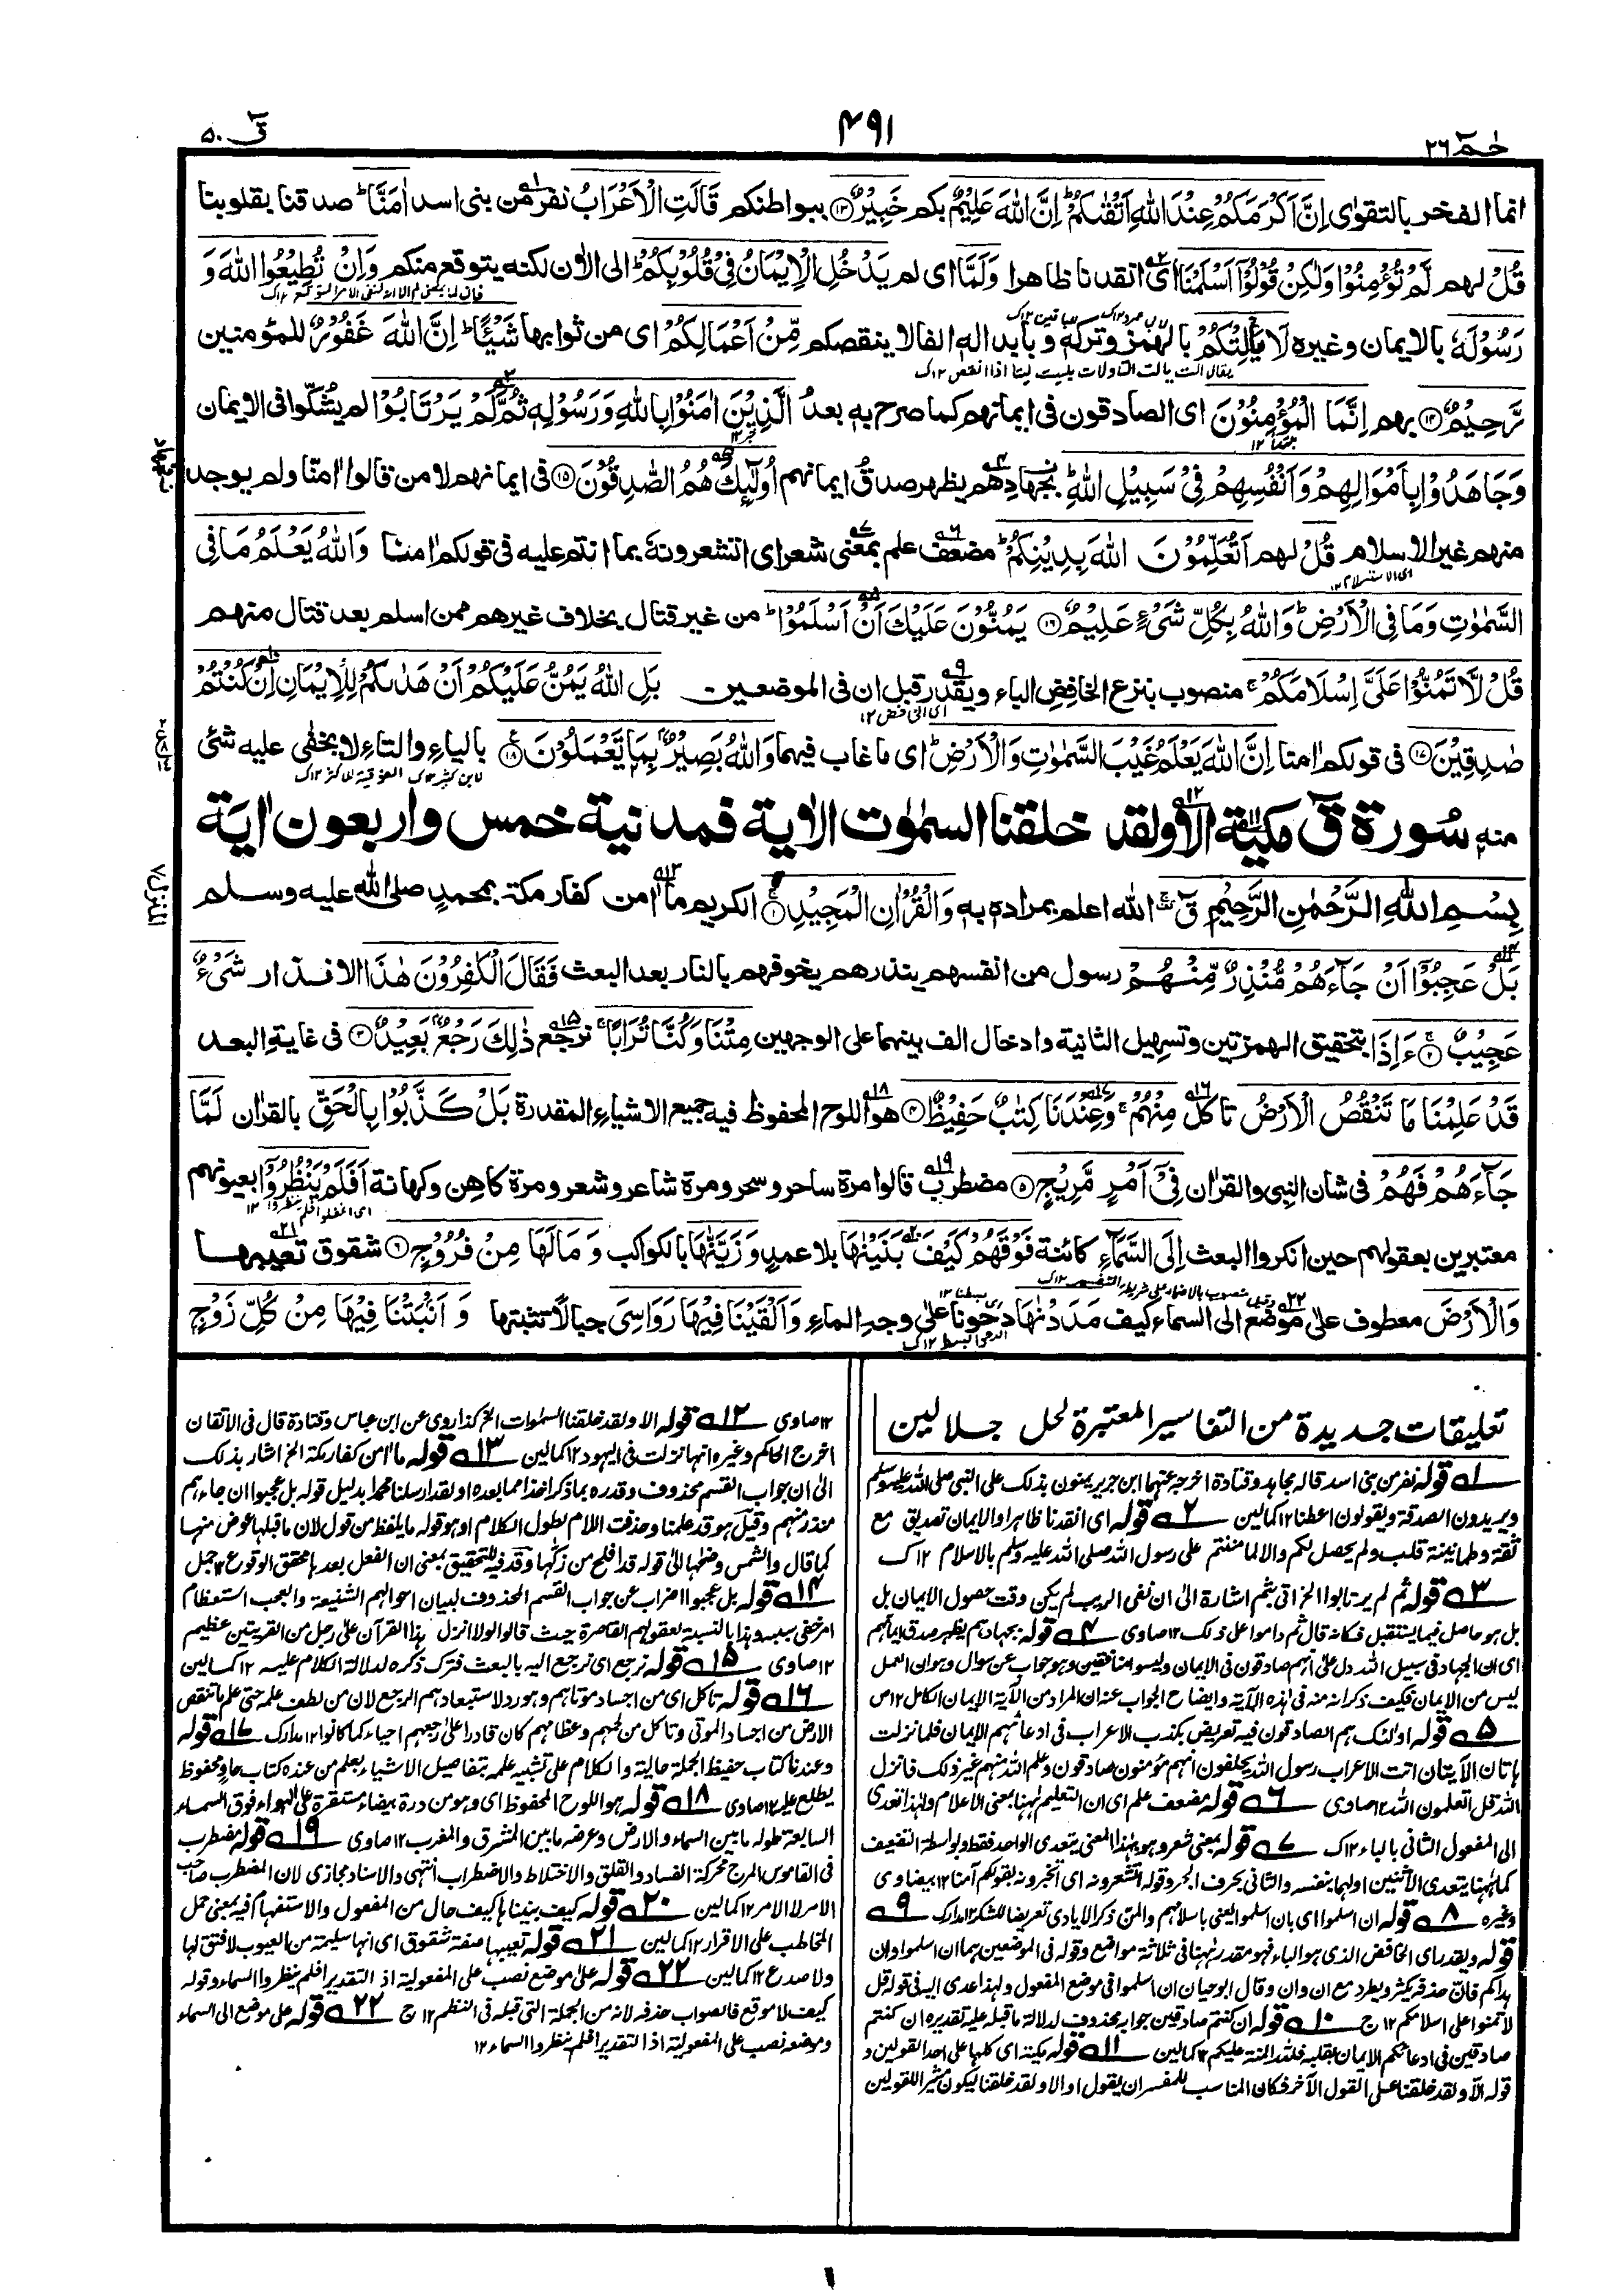 حٰمٓ ٢٦
٤٩١
قٓ ٥٠
انما الفخر بالتقوٰى اِنَّ اَكْرَمَكُمْ عِنْدَ اللّٰهِ اَتْقٰىكُمْ ؕ اِنَّ اللّٰهَ عَلِيْمٌ بكم خَبِيْرٌ ۝١٣ ببواطنكم قَالَتِ الْاَعْرَابُ نفر من بنى اسد اٰمَنَّا ؕ صدقنا بقلوبنا
قُلْ لهم لَّمْ تُؤْمِنُوْا وَلٰكِنْ قُوْلُوْٓا اَسْلَمْنَا اى انقدنا ظاهرا وَلَمَّا اى لم يَدْخُلِ الْاِيْمَانُ فِيْ قُلُوْبِكُمْ ؕ الى الاٰن لكنه يتوقع منكم وَاِنْ تُطِيْعُوا اللّٰهَ وَ
رَسُوْلَهٗ بالايمان وغيره لَا يَاْلِتْكُمْ بالهمز وتركه وبابداله الفا لا ينقصكم مِّنْ اَعْمَالِكُمْ اى من ثوابها شَيْـًٔا ؕ اِنَّ اللّٰهَ غَفُوْرٌ للمؤمنين
رَّحِيْمٌ ۝١٤ بهم اِنَّمَا الْمُؤْمِنُوْنَ اى الصادقون فى ايمانهم كما صرح به بعدُ الَّذِيْنَ اٰمَنُوْا بِاللّٰهِ وَرَسُوْلِهٖ ثُمَّ لَمْ يَرْتَابُوْا لم يشكّوا فى الايمان
وَجَاهَدُوْا بِاَمْوَالِهِمْ وَاَنْفُسِهِمْ فِيْ سَبِيْلِ اللّٰهِ ؕ بجهادهم يظهر صدقُ ايمانهم اُولٰٓئِكَ هُمُ الصّٰدِقُوْنَ ۝١٥ فى ايمانهم لا من قالوا اٰمنّا ولم يوجد
منهم غير الاسلام قُلْ لهم اَتُعَلِّمُوْنَ اللّٰهَ بِدِيْنِكُمْ ؕ مضعف علم بمعنى شعر اى اتشعرونه بما انتم عليه فى قولكم اٰمنا وَاللّٰهُ يَعْلَمُ مَا فِي
السَّمٰوٰتِ وَمَا فِي الْاَرْضِ ؕ وَاللّٰهُ بِكُلِّ شَيْءٍ عَلِيْمٌ ۝١٦ يَمُنُّوْنَ عَلَيْكَ اَنْ اَسْلَمُوْا ؕ من غير قتال بخلاف غيرهم ممن اسلم بعد قتال منهم
قُلْ لَّا تَمُنُّوْا عَلَيَّ اِسْلَامَكُمْ ۚ منصوب بنزع الخافض الباء ويقدر قبل ان فى الموضعين بَلِ اللّٰهُ يَمُنُّ عَلَيْكُمْ اَنْ هَدٰىكُمْ لِلْاِيْمَانِ اِنْ كُنْتُمْ
صٰدِقِيْنَ ۝١٧ فى قولكم اٰمنا اِنَّ اللّٰهَ يَعْلَمُ غَيْبَ السَّمٰوٰتِ وَالْاَرْضِ ؕ اى ما غاب فيهما وَاللّٰهُ بَصِيْرٌۢ بِمَا تَعْمَلُوْنَ ۝١٨ بالياء والتاء لا يخفٰى عليه شئ
منه سُورة قٓ مكية الا ولقد خلقنا السمٰوٰت الاٰية فمدنية خمس واربعون اٰية
بِسْمِ اللّٰهِ الرَّحْمٰنِ الرَّحِيْمِ قٓ ۚ الله اعلم بمراده به وَالْقُرْاٰنِ الْمَجِيْدِ ۝١ الكريم ما اٰمن كفار مكة بمحمدٍ صلى الله عليه وسلم
بَلْ عَجِبُوْٓا اَنْ جَآءَهُمْ مُّنْذِرٌ مِّنْهُمْ رسول من انفسهم ينذرهم يخوفهم بالنار بعد البعث فَقَالَ الْكٰفِرُوْنَ هٰذَا الانذار شَيْءٌ
عَجِيْبٌ ۝٢ ءَاِذَا بتحقيق الهمزتين وتسهيل الثانية وادخال الف بينهما على الوجهين مِتْنَا وَكُنَّا تُرَابًا ۚ نرجع ذٰلِكَ رَجْعٌۢ بَعِيْدٌ ۝٣ فى غاية البعد
قَدْ عَلِمْنَا مَا تَنْقُصُ الْاَرْضُ تاكل مِنْهُمْ ۚ وَعِنْدَنَا كِتٰبٌ حَفِيْظٌ ۝٤ هو اللوح المحفوظ فيه جميع الاشياء المقدرة بَلْ كَذَّبُوْا بِالْحَقِّ بالقراٰن لَمَّا
جَآءَهُمْ فَهُمْ فى شان النبى والقراٰن فِيْٓ اَمْرٍ مَّرِيْجٍ ۝٥ مضطرب قالوا مرة ساحر وسحر ومرة شاعر وشعر ومرة كاهن وكهانة اَفَلَمْ يَنْظُرُوْٓا بعيونهم
معتبرين بعقولهم حين انكروا البعث اِلَى السَّمَآءِ كائنة فَوْقَهُمْ كَيْفَ بَنَيْنٰهَا بلا عمدٍ وَزَيَّنّٰهَا بالكواكب وَمَا لَهَا مِنْ فُرُوْجٍ ۝٦ شقوق تعيبها
وَالْاَرْضَ معطوف على موضع الى السماء كيف مَدَدْنٰهَا دحوناها على وجه الماء وَاَلْقَيْنَا فِيْهَا رَوَاسِيَ جبالا تثبتها وَاَنْۢبَتْنَا فِيْهَا مِنْ كُلِّ زَوْجٍ
تعليقات جديدة من التفاسير المعتبرة لحل جلالين
١ قوله نفر من بنى اسد قاله مجاهد وقتادة اخرجه عنهما ابن جرير يمنون بذلك على النبى صلى الله عليه وسلم
ويريدون الصدقة ويقولون اعطنا ١٢ كمالين ٢ قوله اى انقدنا ظاهرا والايمان تصديق مع
ثقة وطمانينة قلب ولم يحصل لكم والا لما مننتم على رسول الله صلى الله عليه وسلم بالاسلام ١٢ ك
٣ قوله ثم لم يرتابوا الخ اتى بثم اشارة الى ان نفى الريب لم يكن وقت حصول الايمان بل
بل هو حاصل فيما يستقبل فكانه قال ثم داموا على ذلك ١٢ صاوى ٤ قوله بجهادهم يظهر صدق ايمانهم
اى ان الجهاد فى سبيل الله دل على انهم صادقون فى الايمان وليسوا منافقين وهو جواب عن سوال وهو ان العمل
ليس من الايمان فكيف ذكر انه منه فى هذه الآية وايضاح الجواب عنه ان المراد من الآية الايمان الكامل ١٢ ص
٥ قوله اولئك هم الصادقون فيه تعريض بكذب الاعراب فى ادعائهم الايمان فلما نزلت
هاتان الآيتان اتت الاعراب رسول الله يحلفون انهم مؤمنون صادقون وعلم الله منهم غير ذلك فانزل
الله قل اتعلمون الله ١٢ صاوى ٦ قوله مضعف علم اى ان التعليم ههنا بمعنى الاعلام ولهذا تعدى
الى المفعول الثانى بالباء ١٢ ك ٧ قوله بمعنى شعر وهو بهذا المعنى يتعدى الى الواحد فقط وبواسطة التضعيف
كما ههنا يتعدى لاثنين اولهما بنفسه والثانى بحرف الجر وقوله اتشعرونه اى أتخبرونه بقولكم آمنا ١٢ بيضاوى
وغيره ٨ قوله ان اسلموا اى بان اسلموا يعنى باسلامهم والمن ذكر الايادى تعريضا للشكر ١٢ مدارك ٩
قوله ويقدر اى الخافض الذى هو الباء فهو مقدر ههنا فى ثلاثة مواضع وقوله فى الموضعين هما ان اسلموا وان
هداكم فان حذفه يكثر ويطرد مع ان وان وقال ابو حيان ان اسلموا فى موضع المفعول ولهذا عدى اليه فى قوله قل
لا تمنوا على اسلامكم ١٢ ج ١٠ قوله ان كنتم صادقين جوابه محذوف لدلالة ما قبله عليه تقديره ان كنتم
صادقين فى ادعائكم الايمان بقلبه فلله المنة عليكم ١٢ كمالين ١١ قوله مكية اى كلها على احد القولين و
قوله الا ولقد خلقنا على القول الآخر فكان المناسب للمفسر ان يقول او الا ولقد خلقنا ليكون مشيرا للقولين
١٢ صاوى ١٢ قوله الا ولقد خلقنا السموات الخ كذا روى عن ابن عباس وقتادة قال فى الاتقان
اخرج الحاكم وغيره انها نزلت فى اليهود ١٢ كمالين ١٣ قوله ما اٰمن كفار مكة الخ اشار بذلك
الى ان جواب القسم محذوف وقدره بما ذكر اخذا مما بعده او لقد ارسلنا محمدا بدليل قوله بل عجبوا ان جاءهم
منذر منهم وقيل هو قد علمنا وحذفت اللام لطول الكلام او هو قوله ما يلفظ من قول لان ما قبلها عوض منها
كما قال والشمس وضحها الى قوله قد افلح من زكها وقد فيه للتحقيق بمعنى ان الفعل بعدها محقق الوقوع ١٢ جمل
١٤ قوله بل عجبوا اضراب عن جواب القسم المحذوف لبيان احوالهم الشنيعة والعجب استعظام
امر خفى سببه وهذا بالنسبة لعقولهم القاصرة حيث قالوا لولا انزل هذا القرآن على رجل من القريتين عظيم
١٢ صاوى ١٥ قوله نرجع اى نرجع اليه بالبعث فترك ذكره لدلالة الكلام عليه ١٢ كمالين
١٦ قوله تاكل اى من اجساد موتاهم وهو رد لاستبعادهم الرجع لان من لطف علمه حتى علم ما تنقص
الارض من اجساد الموتى وتاكل من لحمهم وعظامهم كان قادرا على رجعهم احياء كما كانوا ١٢ مدارك ١٧ قوله
وعندنا كتاب حفيظ الجملة حالية والكلام على تشبيه علمه بتفاصيل الاشياء بعلم من عنده كتاب حاو محفوظ
يطلع عليه ١٢ صاوى ١٨ قوله هو اللوح المحفوظ اى وهو من درة بيضاء مستقرة على الهواء فوق السماء
السابعة طوله ما بين السماء والارض وعرضه ما بين المشرق والمغرب ١٢ صاوى ١٩ قوله مضطرب
فى القاموس المرج محركة الفساد والقلق والاختلاط والاضطراب انتهى والاسناد مجازى لان المضطرب صاحب
الامر لا الامر ١٢ كمالين ٢٠ قوله كيف بنيناها كيف حال من المفعول والاستفهام فيه بمعنى حمل
المخاطب على الاقرار ١٢ كمالين ٢١ قوله تعيبها صفة شقوق اى انها سليمة من العيوب لا فتق لها
ولا صدع ١٢ كمالين ٢٢ قوله على موضع نصب على المفعولية اذ التقدير افلم ينظروا السماء وقوله
كيف لا موقع فالصواب حذفه لانه من الجملة التى قبله فى النظم ١٢ ج ٢٢ قوله على موضع الى السماء
وموضعه نصب على المفعولية اذ التقدير افلم ينظروا السماء ١٢
١